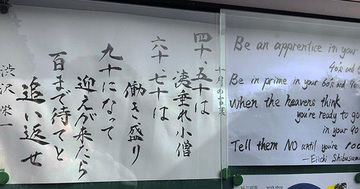 十月の言葉
四十、五十は
洟垂れ小僧
六十七十は
働き盛り
九十になって
迎えが来たら
百まで待てと
追い返せ
渋沢栄一
Be an apprentice in your
40s and
Be in prime in your 60s and 70s
When the heavens think
you're ready to go
in your 90
Tell them NO until you're 100
—Eiichi Shibusawa